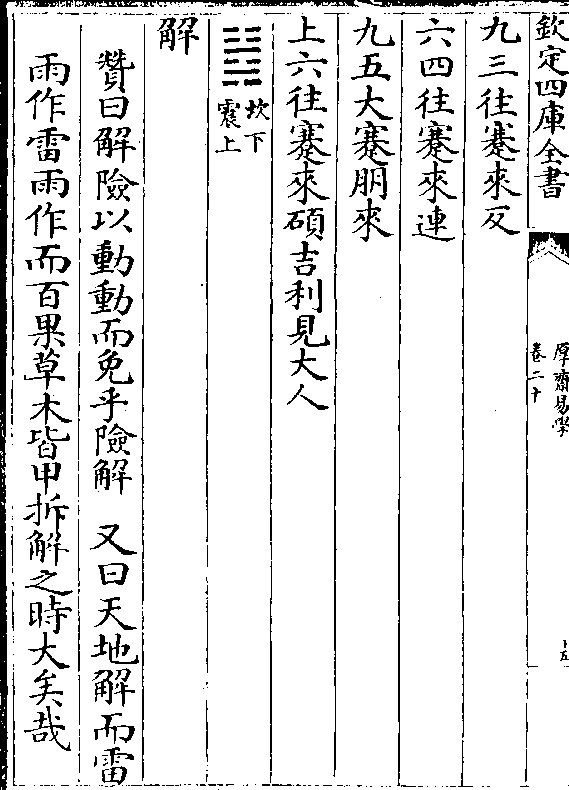 欽定四庫全書
厚齋易學
卷二十
九三往蹇來反
六四往蹇來連
九五大蹇朋來
上六往蹇來碩吉利見大人
坎下
震上
解
贊曰解險以動動而免乎險解 又曰天地解而雷
雨作雷雨作而百果草木皆甲拆解之時大矣哉